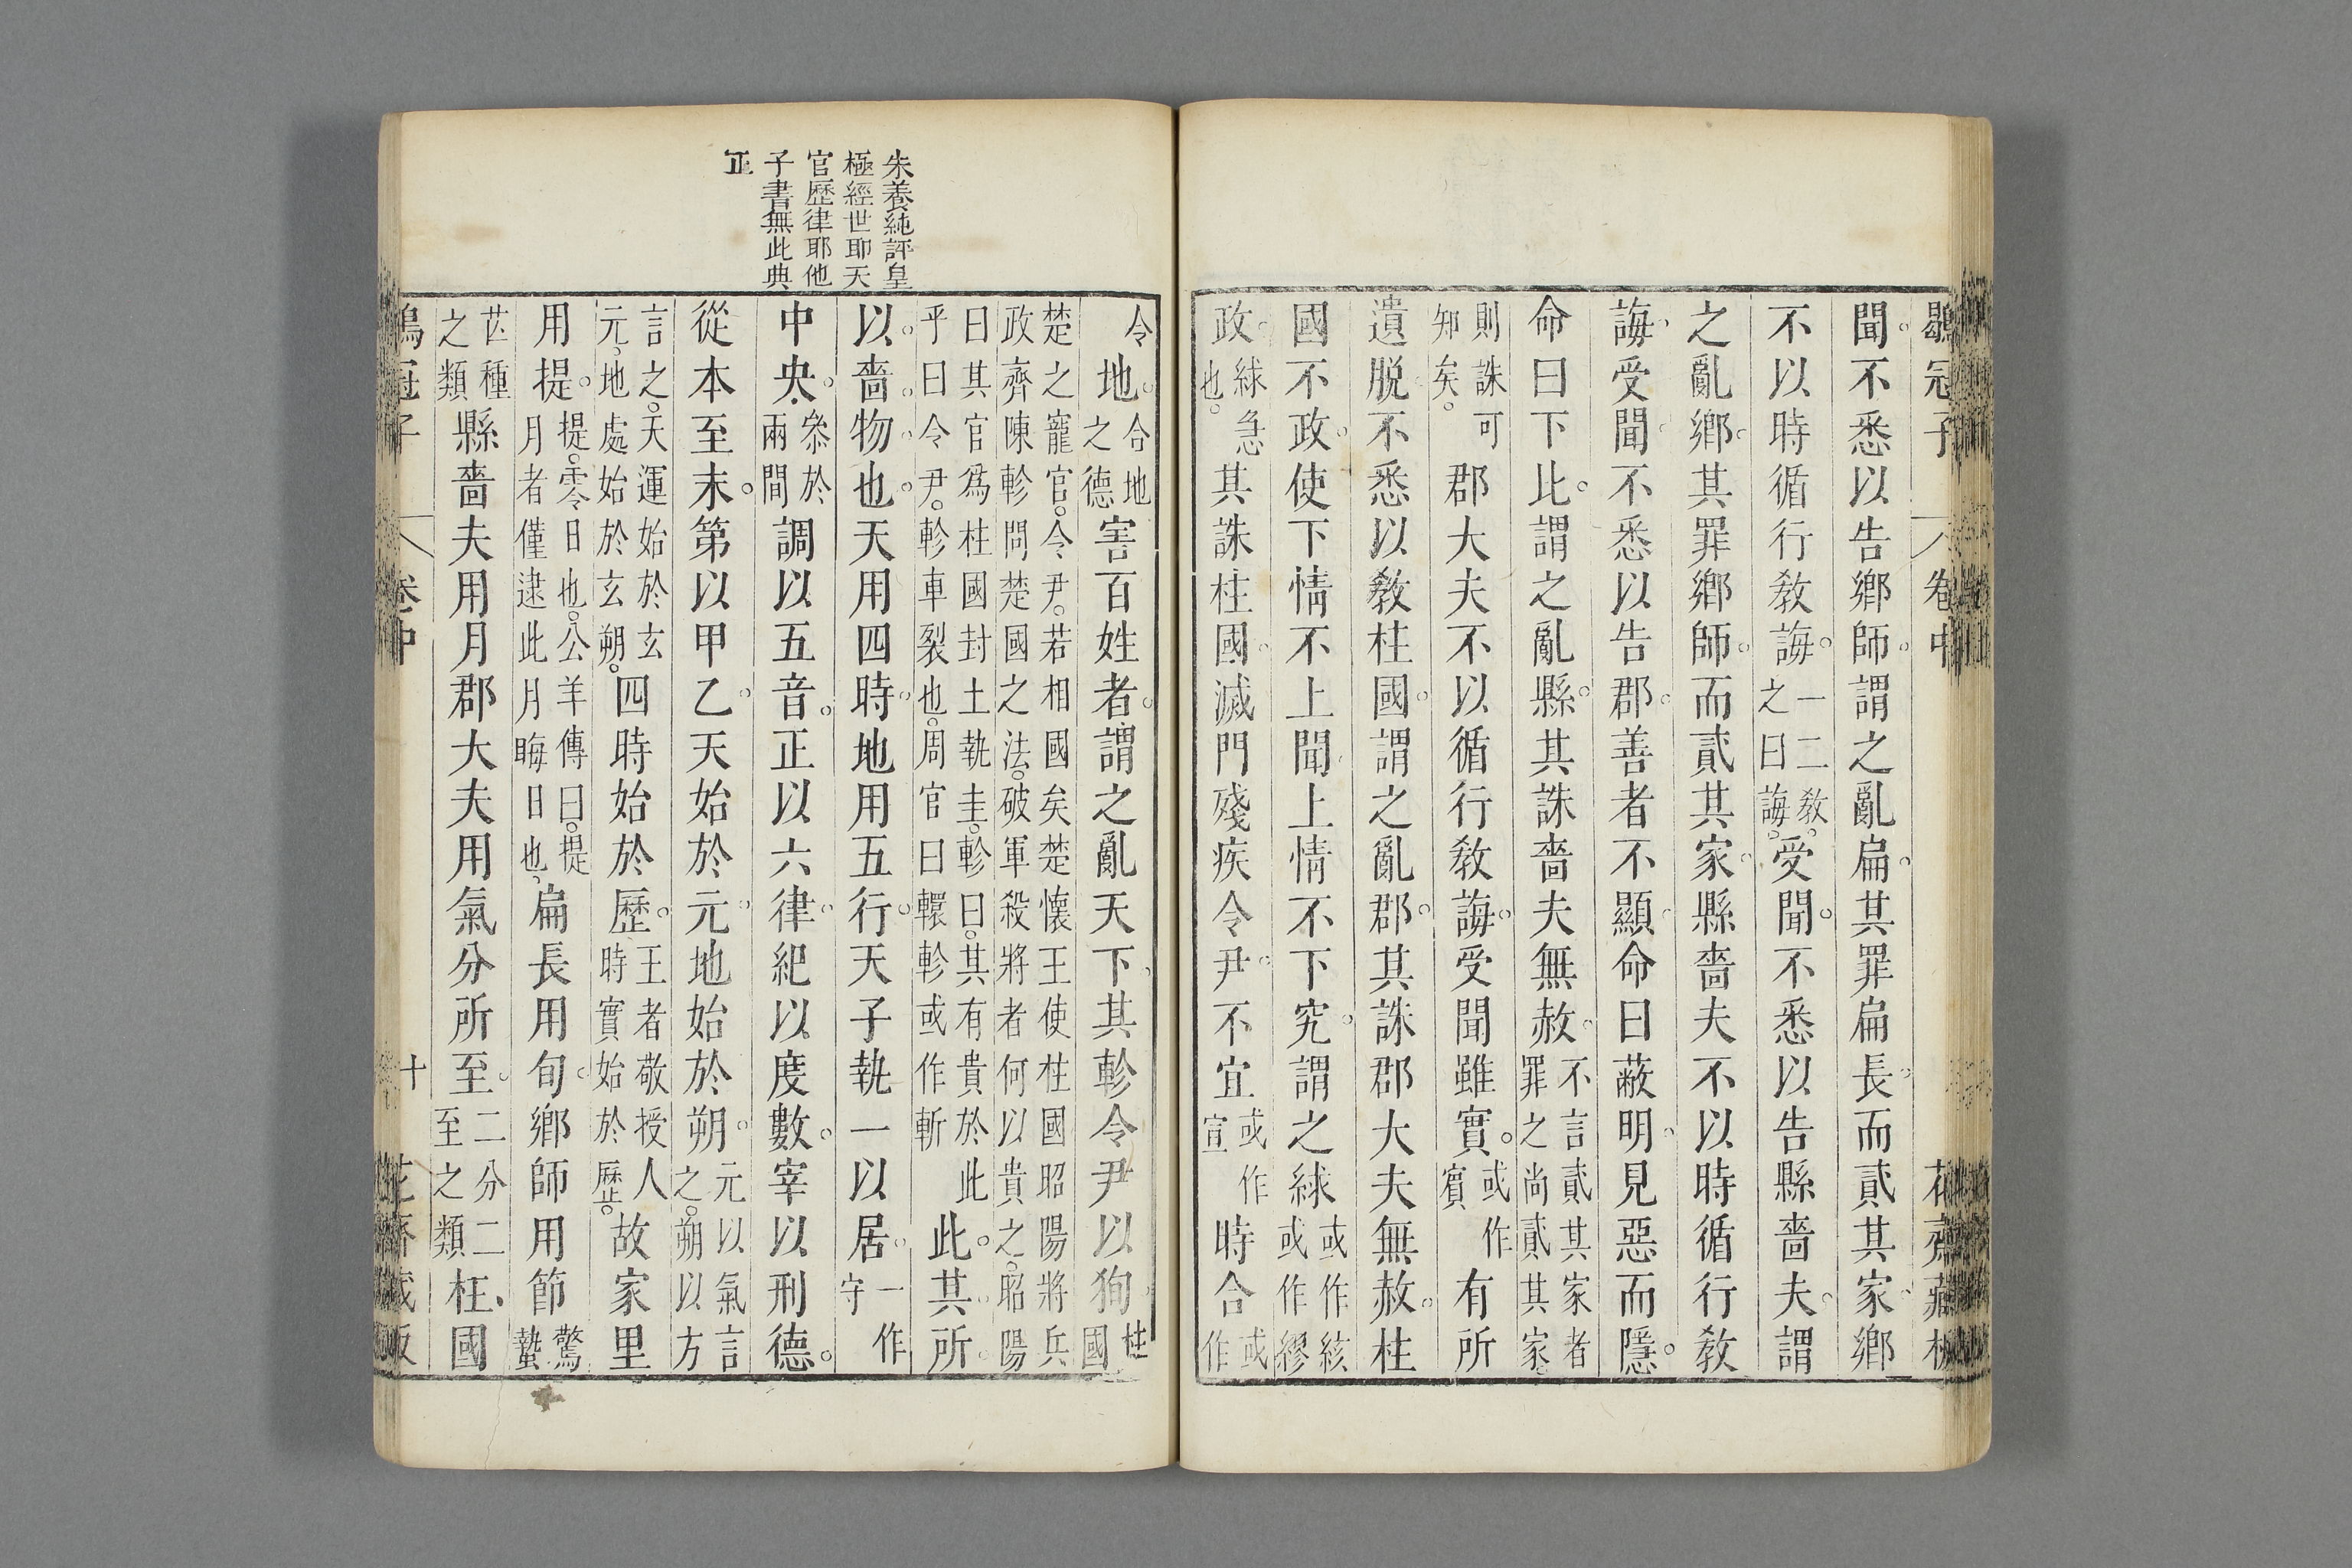 鶡冠子 卷中 花齋藏板
聞。不悉以告鄉師。謂之亂扁。其罪扁長。而貳其家。鄉
不以時循行教誨。一二教。之曰誨。受聞。不悉以告縣嗇夫。謂
之亂鄉。其罪鄉師。而貳其家。縣嗇夫不以時循行教
誨。受聞。不悉以告郡。善者不顯。命曰蔽明。見惡而隱。
命曰下比。謂之亂縣。其誅嗇夫無赦。不言貳其家者罪之尚貳其家。
則誅可知矣。郡大夫不以循行教誨。受聞雖實。或作賓有所
遺脫。不悉以教柱國。謂之亂郡。其誅郡大夫無赦。柱
國不政。使下情不上聞。上情不下究。謂之絿或作絯或作繆
政。絿急也。其誅柱國。滅門殘疾令尹。不宜或作宣時合或作
朱養純評皇
極經世耶天
官歷律耶他
子書無此典
正
令地。合地之德害百姓者。謂之亂天下。其軫令尹以狥。柱國
楚之寵官。令尹。若相國矣楚懷王使柱國昭陽將兵
政齊陳軫問楚國之法。破軍殺將者何以貴之。昭陽
曰其官為柱國封土執圭。軫曰。其有貴於此
乎曰令尹。軫車裂也。周官曰轘軫或作斬此。其所
以。嗇。物。也。天用四時。地用五行。天子執一以居。一作守
中央。叅於兩間調以五音。正以六律。紀以度數。宰以刑德。
從本至末。第以甲乙。天始於元。地始於朔。元以氣言之。朔以方
言之。天運始於玄元。地處始於玄朔。四時始於歷。王者敬授人時實始於歷。故家里
用提。提。零日也。公羊傳曰。提月者僅逮此月晦日也。扁長用旬。鄉師用節驚蟄
芒種之類縣嗇夫用月郡大夫用氣分所至。二分二至之類柱國
鶡冠子 卷中 十 花齋藏板